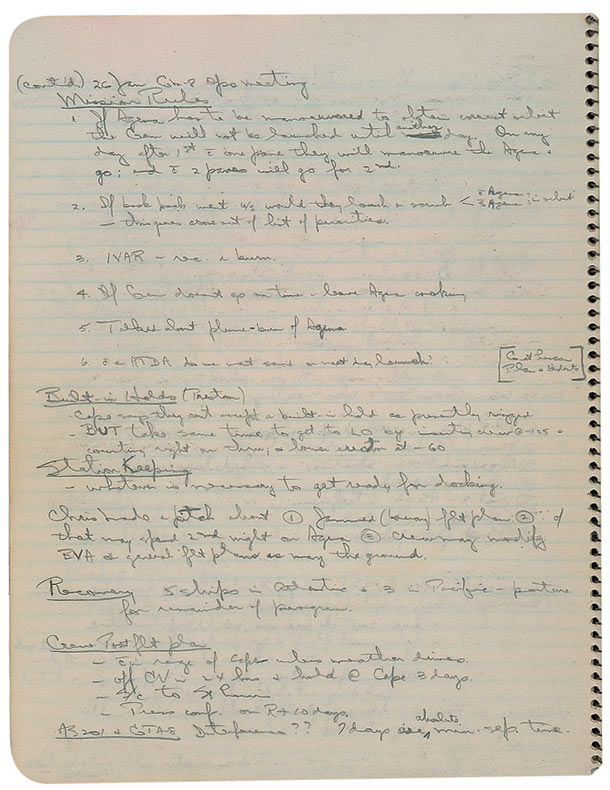 (cont'd) 26 Jan Gm-8 Ops meeting
Mission Rules
1. If Agena has to be maneuvered to obtain correct orbit
the Gem will not be launched until another day. On any
day after 1st c one pane they will maneuver the Agena +
go; and c 2 panes will go for 2nd.
2. If back pack went would they launch a
c Agena in orbit
Agena
- this goes come out of list of priorities.
3. IVAR - rec. a burn.
4. If Gem doesn't go on time - leave Agena cooking
5. Talked about plume-burn of Agena
6. ATDA do we want same or next day launch?
Plan
Built-in Holds (Preston)
- Cape says they can't accept a built in hold as presently rigged
- BUT take same time to get to LO by inserting crew @ -105 +
counting right on thru, + lower erector at -60
Station Keeping
- whatever is necessary to get ready for docking.
Chris made a pitch about ① Jammed flt plan ② if
that may spend 2nd night on Agena ③ Crew may modify
EVA & general flt plans as may the ground.
Recovery 5 ships in Atlantic + 3 in Pacific - posture
for remainder of program.
Crew Postflt plan
- range of Cape unless weather
- off CV in 24 hrs + hold @ Cape 3 days.
- S/C to St Louis
- Press conf. on R+10 days.
AS 201 + GTA-8 Interference?? 7 days absolute min. sep. time.